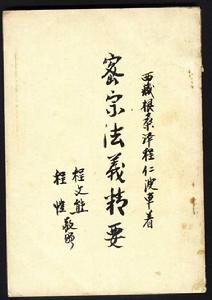 西藏根桑泽程仁波車著
密宗法義精要
程文熊
程惟敬